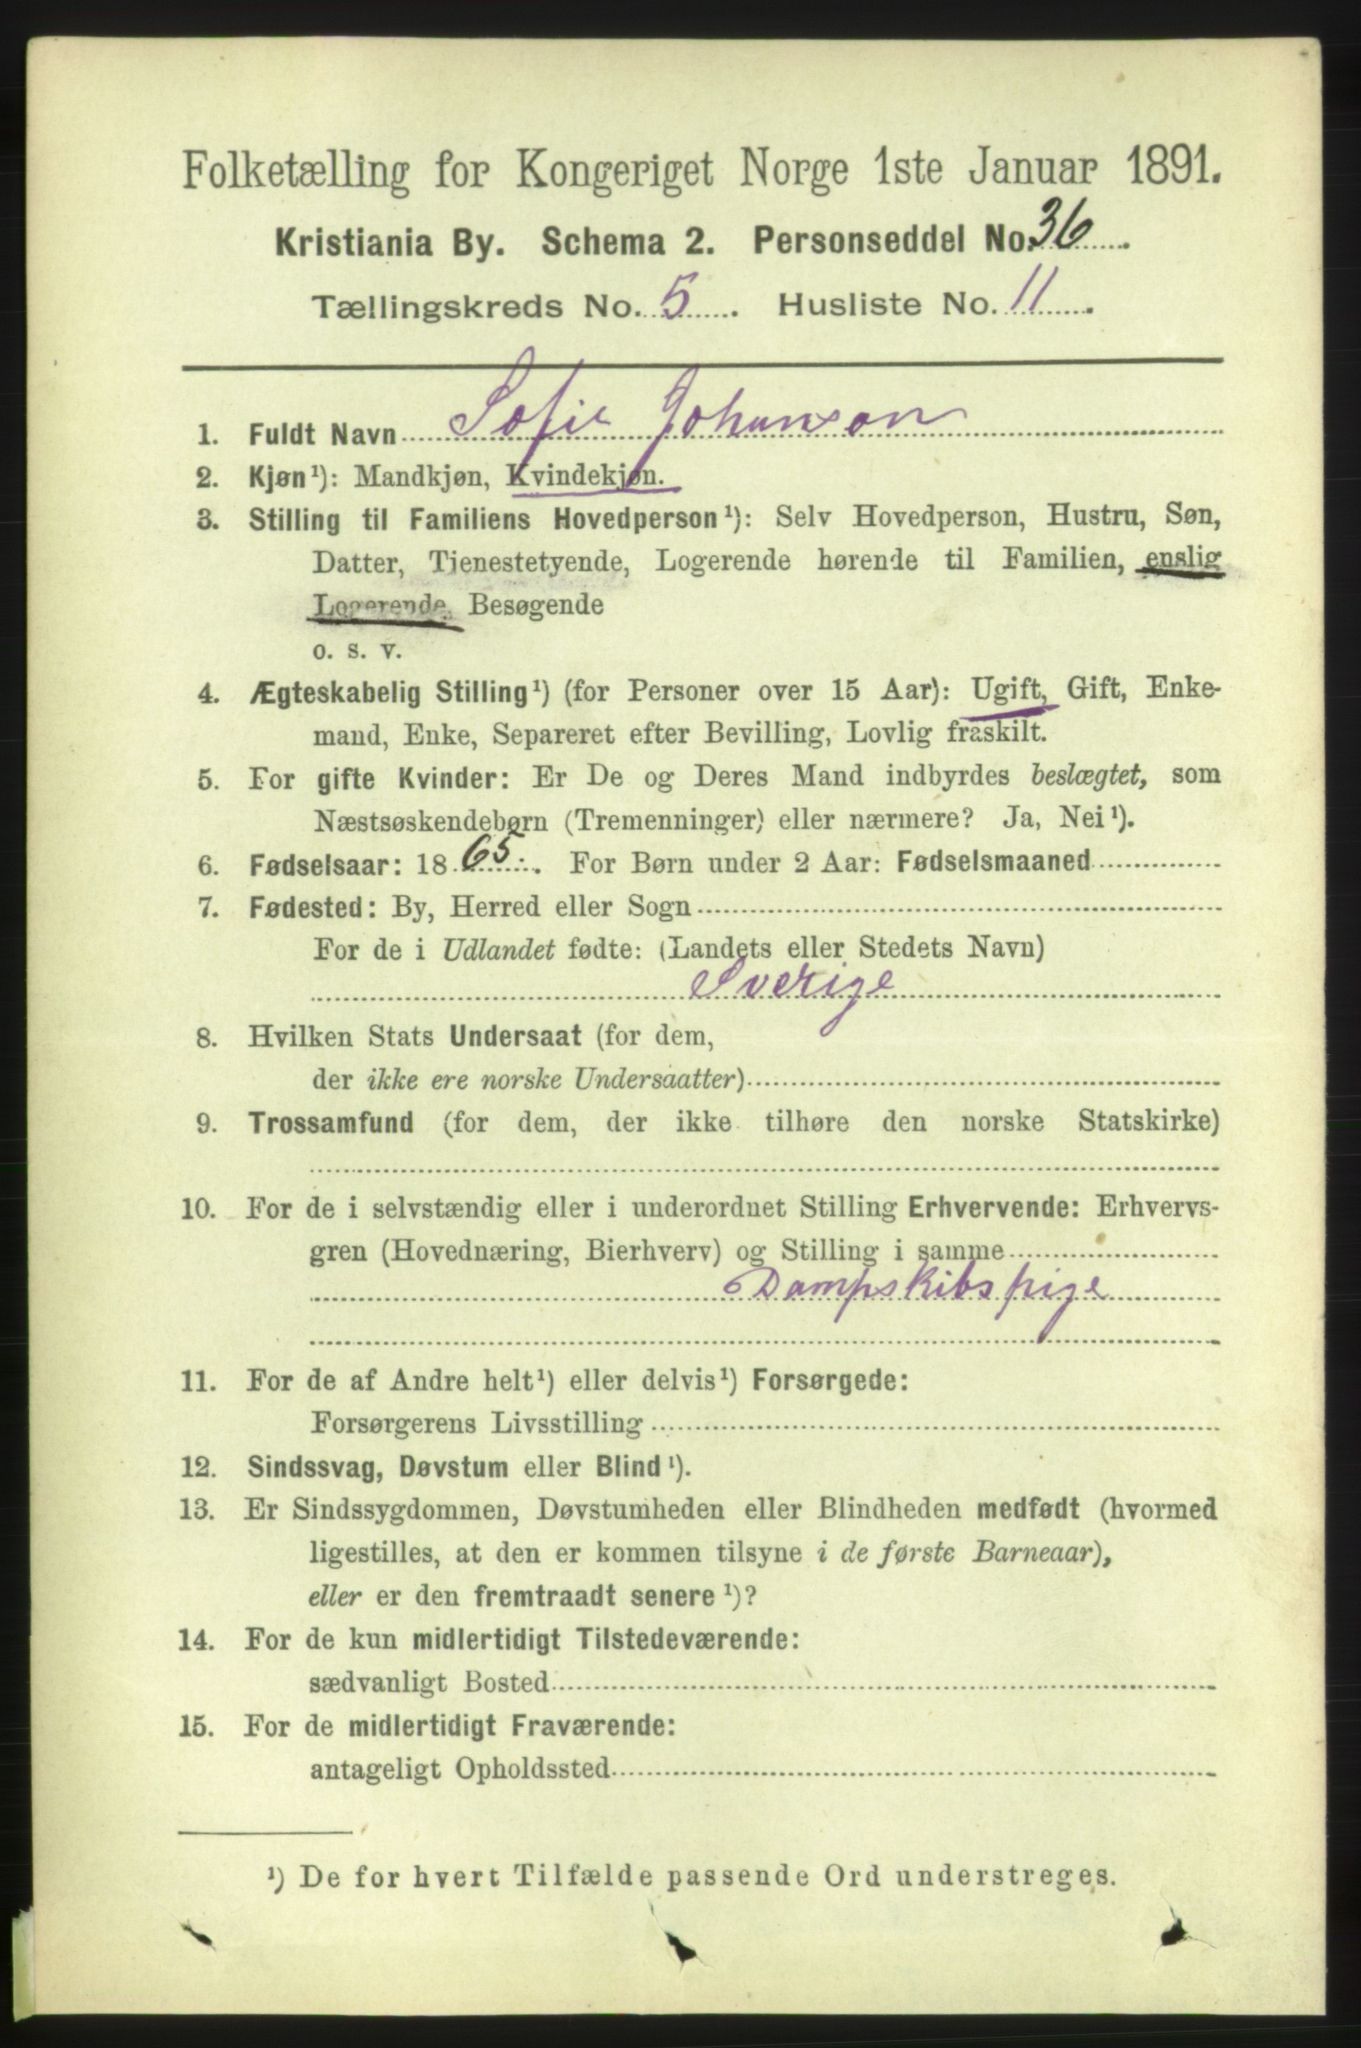 Folketælling for Kongeriget Norge 1ste Januar 1891.
Kristiania By. Schema 2. Personseddel No. 36.
Tællingskreds No. 5. Husliste No. 11.
1. Fuldt Navn Sofie Johanson
2. Kjøn¹): Mandkjøn, Kvindekjøn.
3. Stilling til Familiens Hovedperson¹): Selv Hovedperson, Hustru, Søn,
Datter, Tjenestetyende, Logerende hørende til Familien, enslig
Logerende, Besøgende
o. s. v.
4. Ægteskabelig Stilling¹) (for Personer over 15 Aar): Ugift, Gift, Enke-
mand, Enke, Separeret efter Bevilling, Lovlig fraskilt.
5. For gifte Kvinder: Er De og Deres Mand indbyrdes beslægtet, som
Næstsøskendebørn (Tremenninger) eller nærmere? Ja, Nei¹).
6. Fødselsaar: 1865. For Børn under 2 Aar: Fødselsmaaned
7. Fødested: By, Herred eller Sogn
For de i Udlandet fødte: (Landets eller Stedets Navn)
Sverige
8. Hvilken Stats Undersaat (for dem,
der ikke ere norske Undersaatter)
9. Trossamfund (for dem, der ikke tilhøre den norske Statskirke)
10. For de i selvstændig eller i underordnet Stilling Erhvervende: Erhvervs-
gren (Hovednæring, Bierhverv) og Stilling i samme
Dampskibspige
11. For de af Andre helt¹) eller delvis¹) Forsørgede:
Forsørgerens Livsstilling
12. Sindssvag, Døvstum eller Blind¹).
13. Er Sindssygdommen, Døvstumheden eller Blindheden medfødt (hvormed
ligestilles, at den er kommen tilsyne i de første Barneaar),
eller er den fremtraadt senere¹)?
14. For de kun midlertidigt Tilstedeværende:
sædvanligt Bosted
15. For de midlertidigt Fraværende:
antageligt Opholdssted
¹) De for hvert Tilfælde passende Ord understreges.